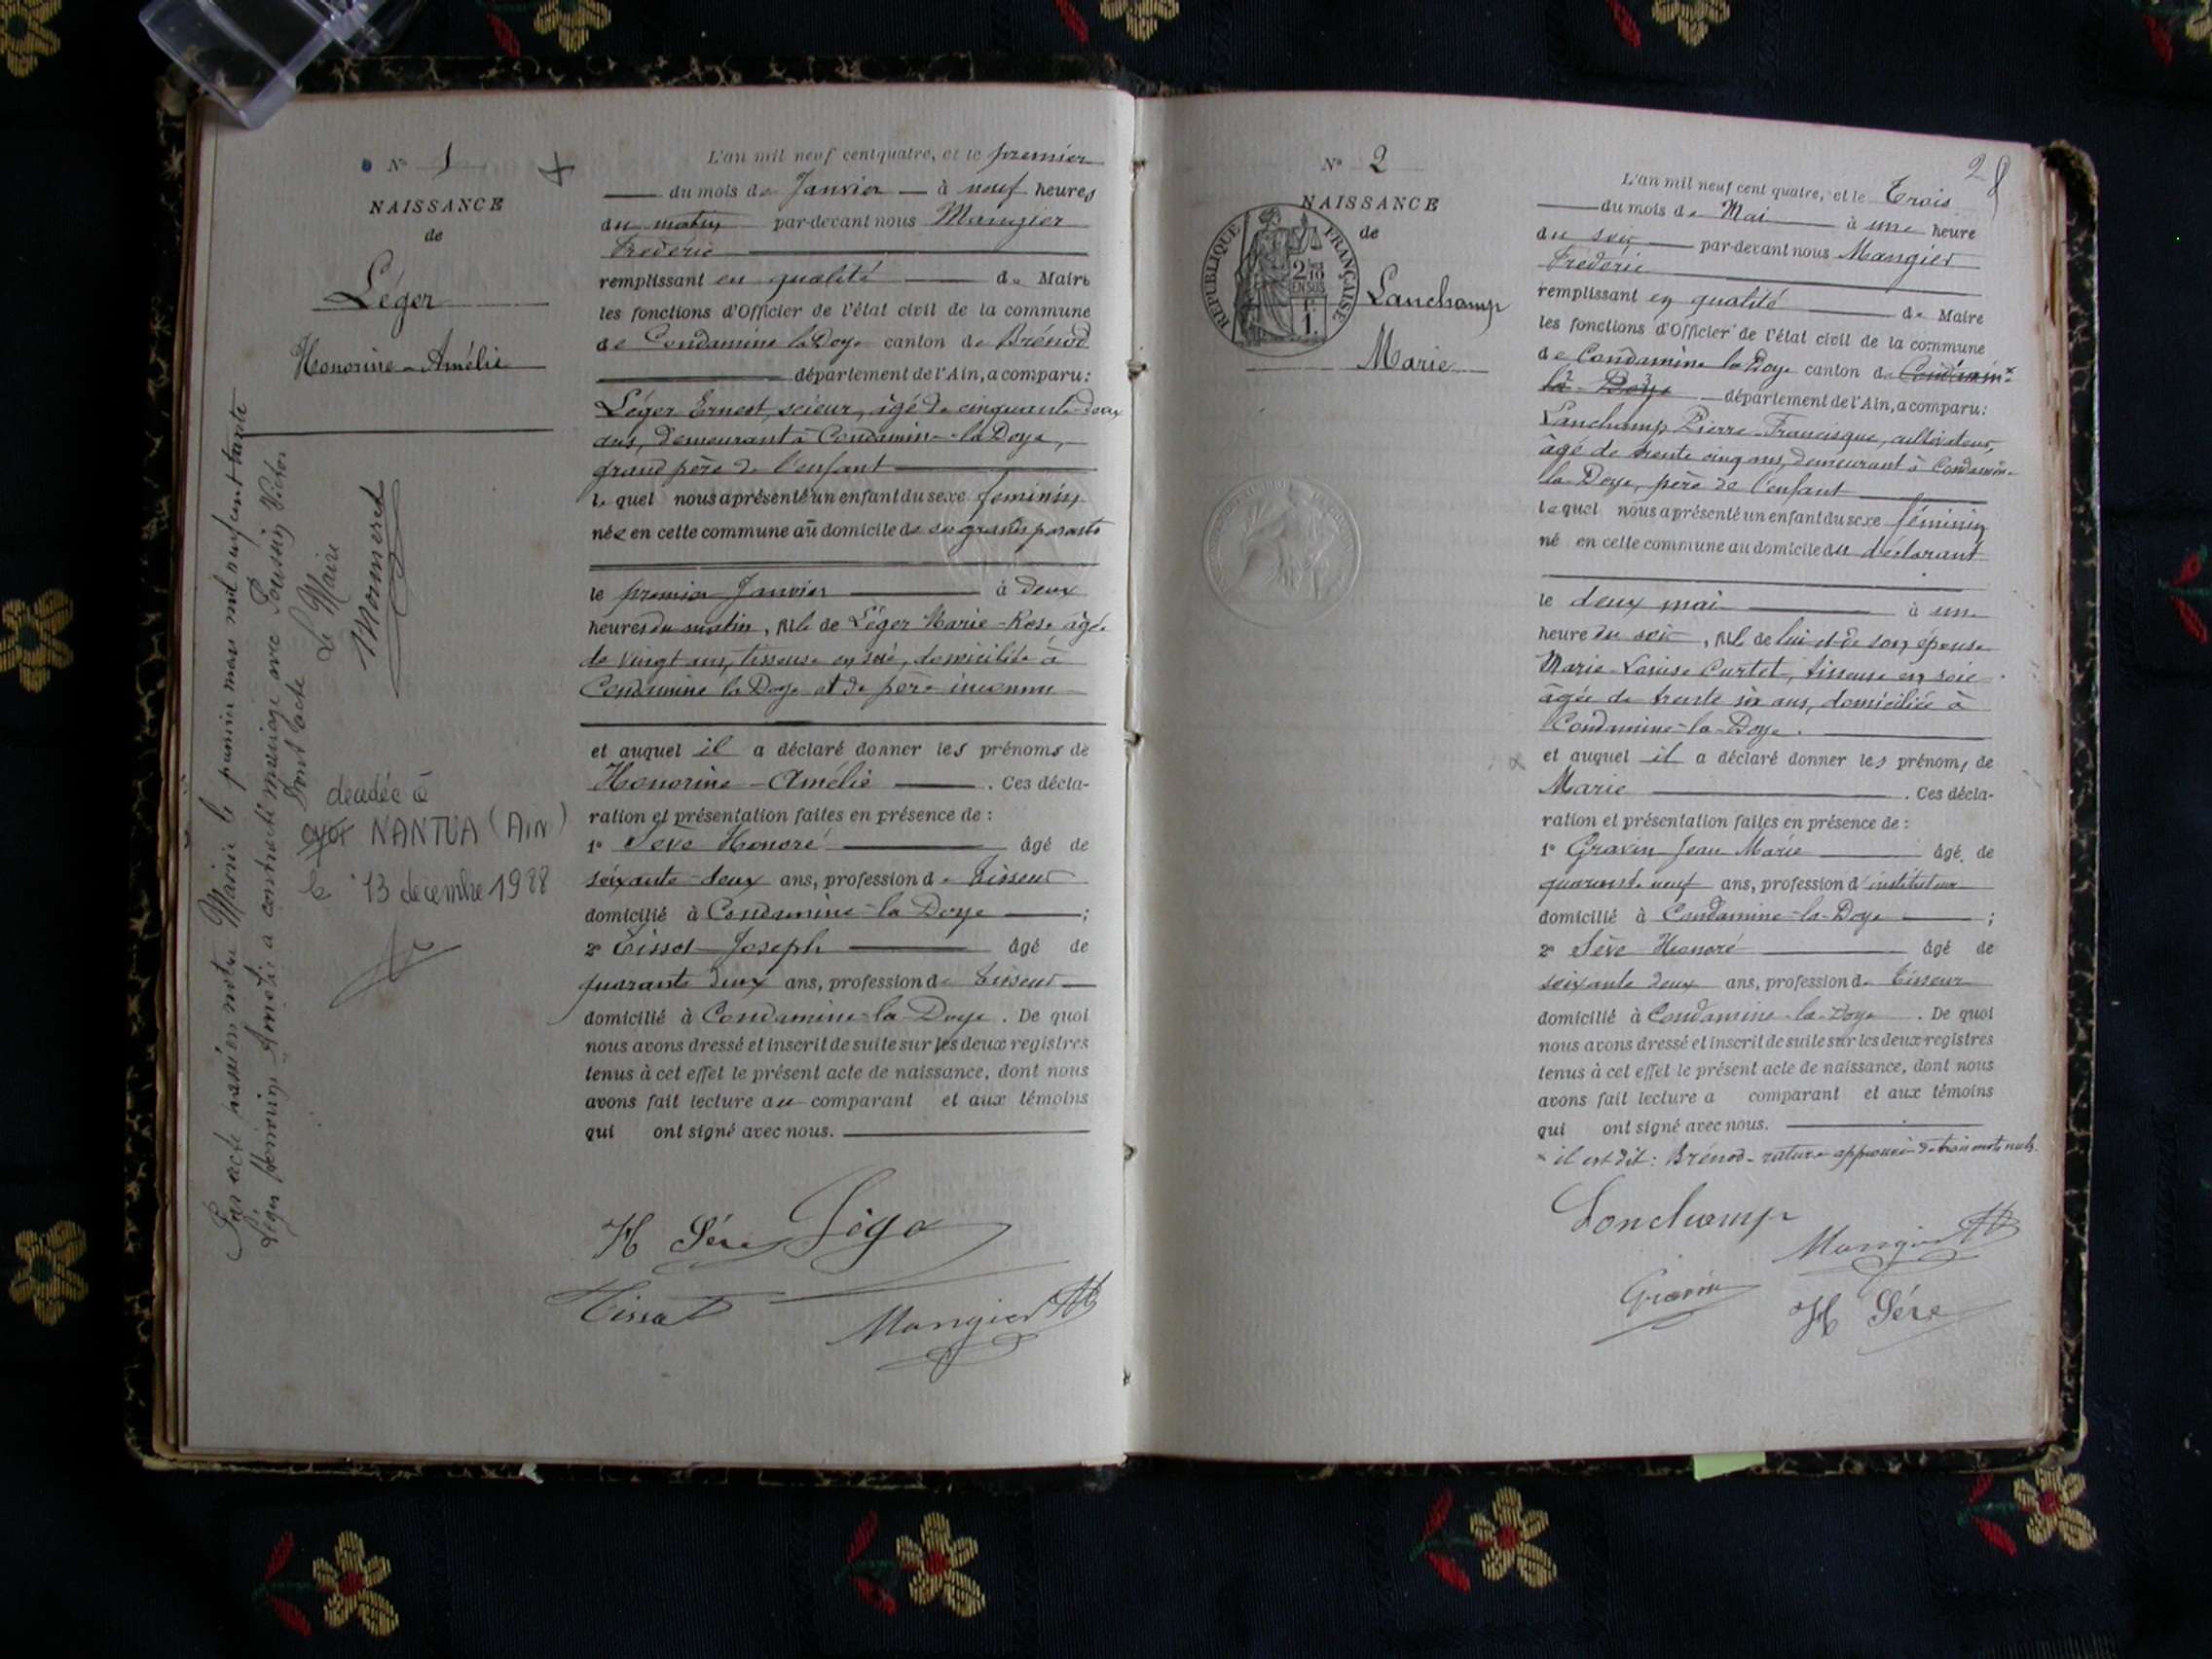 N° 1
NAISSANCE
de
Léger
Honorine-Amélie
Par acte passé en notre Mairie le premier mars mil neuf cent trente
Léger Honorine-Amélie a contracté mariage avec Poussin Victor
Dont acte Le Maire
décédée à
NANTUA (AIN)
le 13 décembre 1988
L'an mil neuf cent quatre, et le premier
du mois de Janvier à neuf heures
du matin par-devant nous Mangier
Frédéric
remplissant en qualité de Maire
les fonctions d'Officier de l'état civil de la commune
de Condamine la Doye canton de Brénod
département de l'Ain, a comparu:
Léger Ernest, scieur, âgé de cinquante-deux
ans, demeurant à Condamine-la Doye,
grand père de l'enfant
lequel nous a présenté un enfant du sexe féminin
née en cette commune au domicile de ses grands parents
le premier Janvier à deux
heures du matin, fille de Léger Marie-Rose âgée
de vingt ans, tisseuse en soie, domiciliée à
Condamine la Doye et de père inconnu
et auquel il a déclaré donner les prénoms de
Honorine-Amélie. Ces décla-
ration et présentation faites en présence de :
1° Sève Honoré âgé de
soixante-deux ans, profession de tisseur
domicilié à Condamine-la Doye ;
2° Tissot Joseph âgé de
quarante deux ans, profession de tisseur
domicilié à Condamine-la Doye. De quoi
nous avons dressé et inscrit de suite sur les deux registres
tenus à cet effet le présent acte de naissance, dont nous
avons fait lecture au comparant et aux témoins
qui ont signé avec nous.
H Sève Léger
Tissot
Mangier
28
N° 2
NAISSANCE
de
REPUBLIQUE FRANÇAISE
2/10 EN SUS
1F.
Lanchamp
Marie
L'an mil neuf cent quatre, et le Trois
du mois de Mai à une heure
du soir par-devant nous Mangier
Frédéric
remplissant en qualité de Maire
les fonctions d'Officier de l'état civil de la commune
de Condamine la Doye canton de Condamine
la Doye département de l'Ain, a comparu:
Lanchamp Pierre-Francisque, cultivateur,
âgé de trente cinq ans, demeurant à Condamine-
la Doye, père de l'enfant
lequel nous a présenté un enfant du sexe féminin
né en cette commune au domicile du déclarant
le deux mai à une
heure du soir, fille de lui et de son épouse
Marie-Louise Curtet, tisseuse en soie
âgée de trente six ans, domiciliée à
Condamine-la-Doye.
et auquel il a déclaré donner les prénoms de
Marie. Ces décla-
ration et présentation faites en présence de :
1° Gravin Jean Marie âgé de
quarante neuf ans, profession d'instituteur
domicilié à Condamine-la-Doye ;
2° Sève Honoré âgé de
soixante deux ans, profession de tisseur
domicilié à Condamine-la-Doye. De quoi
nous avons dressé et inscrit de suite sur les deux registres
tenus à cet effet le présent acte de naissance, dont nous
avons fait lecture a comparant et aux témoins
qui ont signé avec nous.
× il est dit : Brénod - rature approuvée de trois mots nuls.
Lonchamp
Mangier
Gravin
H Sève